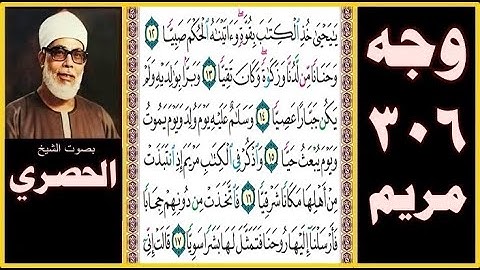 وجه
٣٠٦
مريم
يَٰيَحْيَىٰ خُذِ ٱلْكِتَٰبَ بِقُوَّةٍۖ وَءَاتَيْنَٰهُ ٱلْحُكْمَ صَبِيًّا ١٢
وَحَنَانًا مِّن لَّدُنَّا وَزَكَوٰةًۖ وَكَانَ تَقِيًّا ١٣ وَبَرًّۢا بِوَٰلِدَيْهِ وَلَمْ
يَكُن جَبَّارًا عَصِيًّا ١٤ وَسَلَٰمٌ عَلَيْهِ يَوْمَ وُلِدَ وَيَوْمَ يَمُوتُ
وَيَوْمَ يُبْعَثُ حَيًّا ١٥ وَٱذْكُرْ فِى ٱلْكِتَٰبِ مَرْيَمَ إِذِ ٱنتَبَذَتْ
مِنْ أَهْلِهَا مَكَانًا شَرْقِيًّا ١٦ فَٱتَّخَذَتْ مِن دُونِهِمْ حِجَابًا
فَأَرْسَلْنَآ إِلَيْهَا رُوحَنَا فَتَمَثَّلَ لَهَا بَشَرًا سَوِيًّا ١٧ قَالَتْ إِنِّىٓ
بصوت الشيخ
الحصري